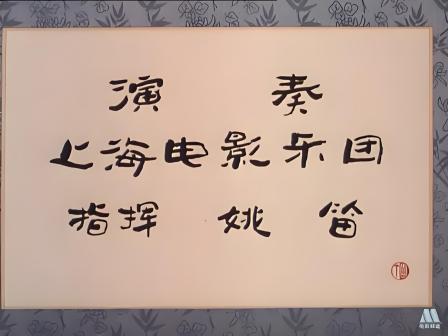 演 奏
上海电影乐团
指挥 姚 笛